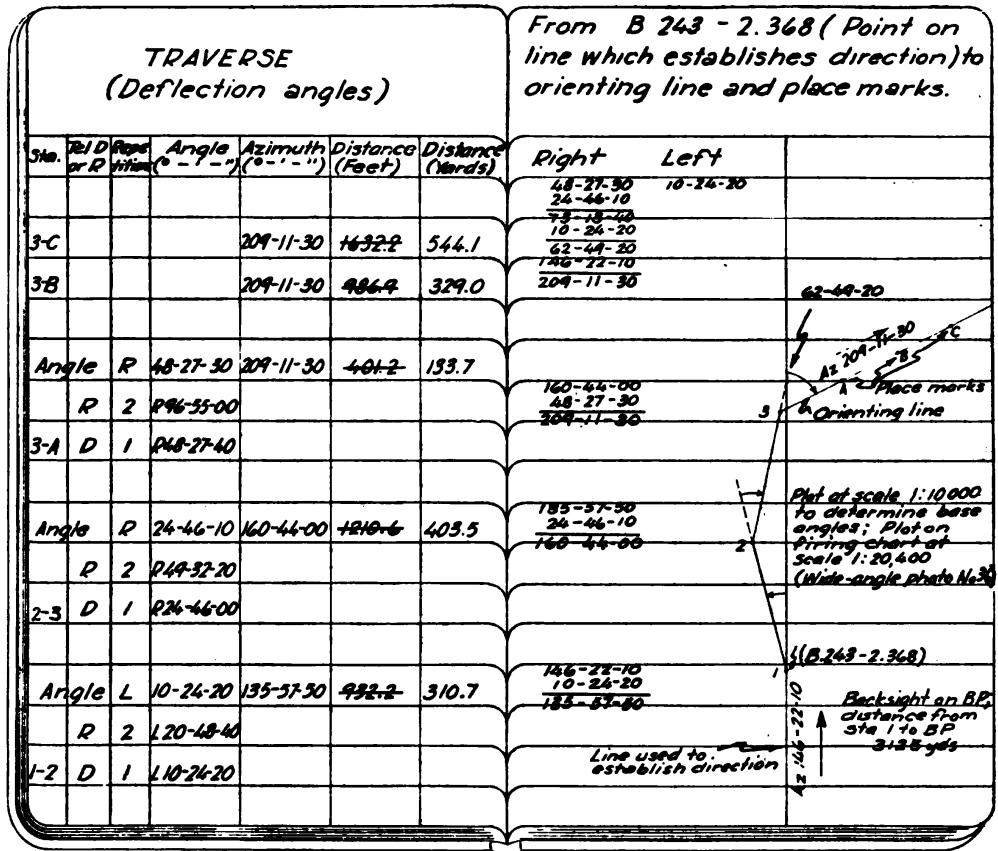 TRAVERSE
(Deflection angles)
Sta. Tel D or R Repetition Angle (° - ' - ") Azimuth (° - ' - ") Distance (Feet) Distance (Yards)
3-C 209-11-30 1632.2 544.1
3-B 209-11-30 986.9 329.0
Angle R 48-27-30 209-11-30 401.2 133.7
R 2 R96-55-00
3-A D 1 R48-27-40
Angle R 24-46-10 160-44-00 1210.6 403.5
R 2 R49-32-20
2-3 D 1 R24-46-00
Angle L 10-24-20 135-57-50 932.2 310.7
R 2 L20-48-40
1-2 D 1 L10-24-20
From B 243 - 2.368 (Point on
line which establishes direction) to
orienting line and place marks.
Right Left
48-27-30 10-24-20
24-46-10
73-13-40
10-24-20
62-49-20
146-22-10
209-11-30
62-49-20
Az 209-11-30
C
B
A
Place marks
160-44-00
48-27-30
209-11-30
3
Orienting line
135-57-50
24-46-10
160-44-00
2
Plot at scale 1:10000
to determine base
angles; Plot on
firing chart at
scale 1:20,400
(Wide-angle photo No.
146-22-10
10-24-20
135-57-50
1
(B.243-2.368)
Az 146-22-10
Backsight on BP,
distance from
Sta 1 to BP
3125 yds
Line used to
establish direction